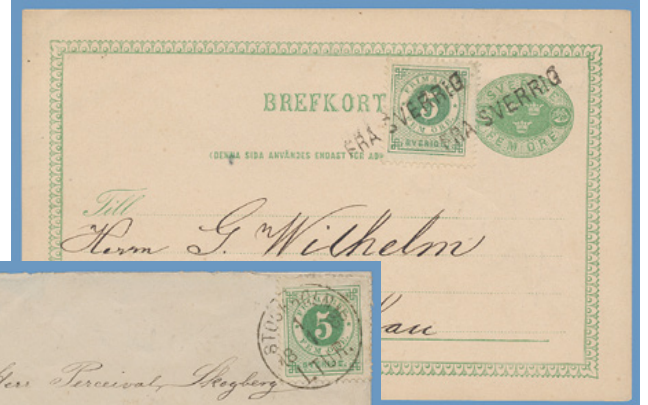 BREFKORT
FRIMÄRKE
5
FEM ÖRE
SVERIGE
FRA SVERRIG
FRA SVERRIG
FEM ÖRE
(DENNA SIDA ANVÄNDES ENDAST FÖR AD
Till
Herrn G. Wilhelm
kau
STOCKHOLM
5
FEM ÖRE
Herr Perceival, Skogberg